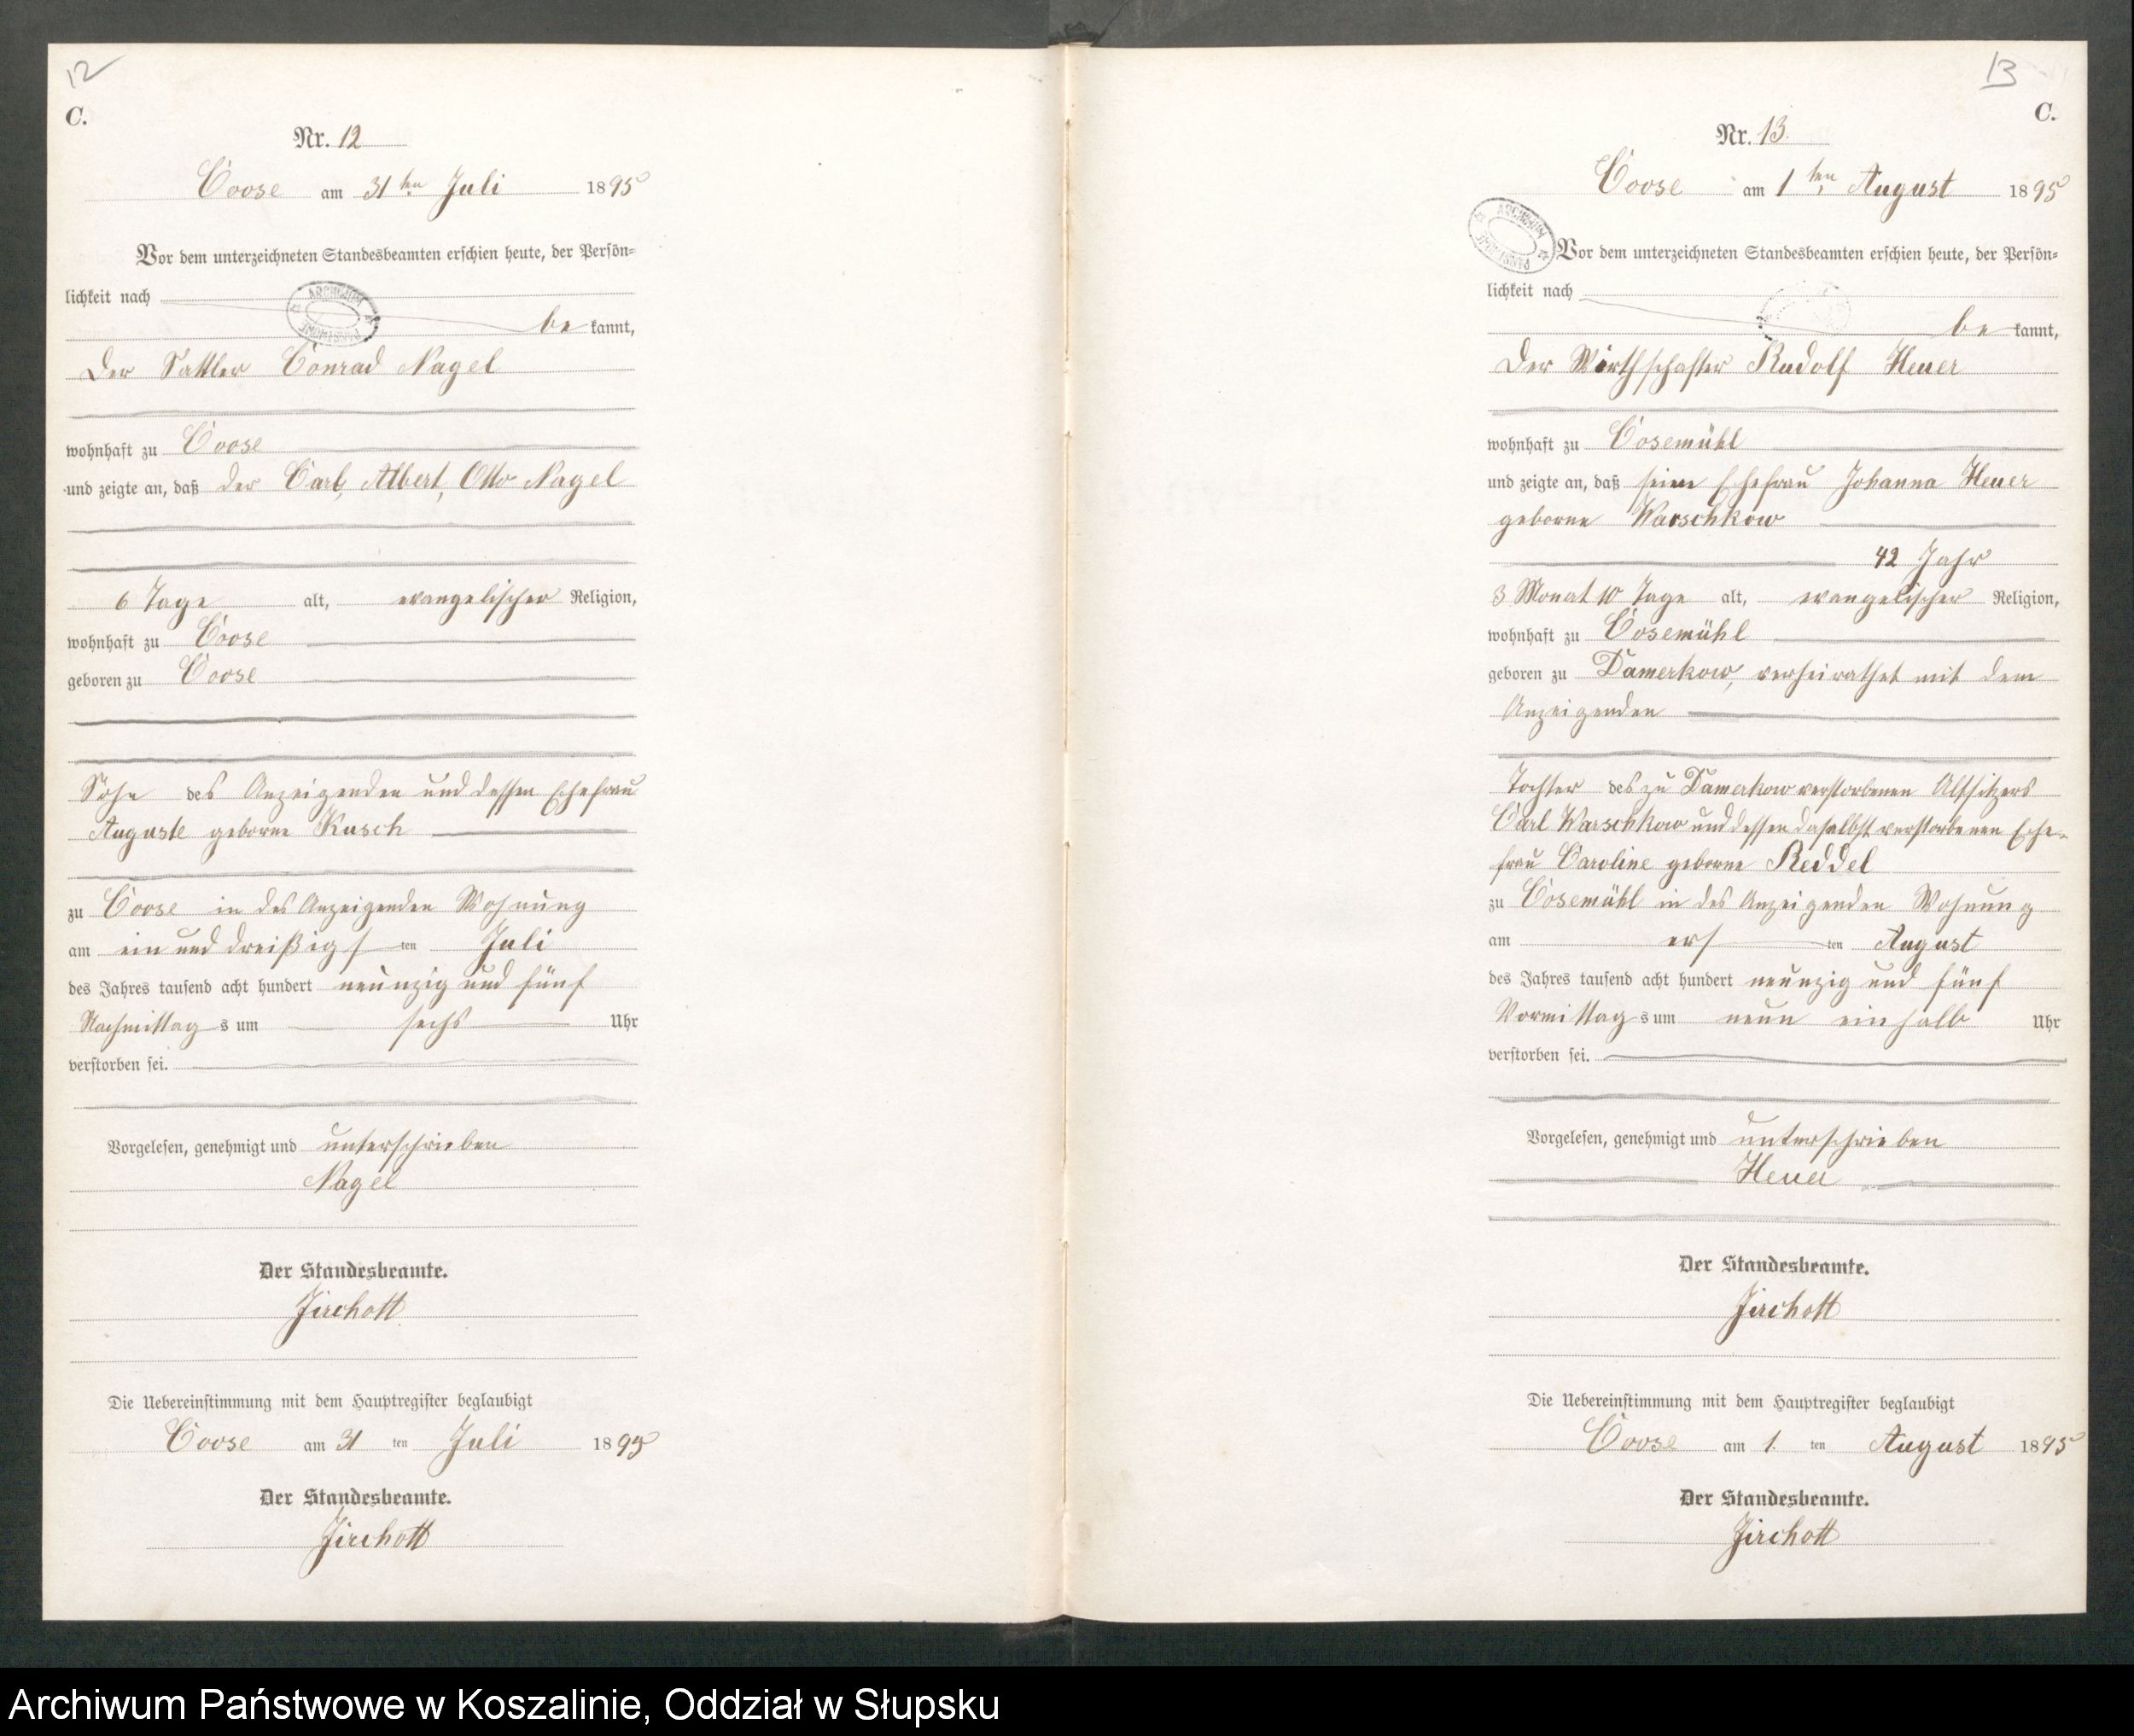 12
C.
Nr. 12
Coose am 31ten Juli 1895
Vor dem unterzeichneten Standesbeamten erschien heute, der Persön-
lichkeit nach
ARCHIWUM PAŃSTWOWE
be kannt,
der Sattler Conrad Nagel
wohnhaft zu Coose
und zeigte an, daß der Carl, Albert, Otto Nagel
6 Tage alt, evangelischer Religion,
wohnhaft zu Coose
geboren zu Coose
Sohn des Anzeigenden und dessen Ehefrau
Auguste geborne Kusch
zu Coose in des Anzeigenden Wohnung
am ein und dreißigsten Juli
des Jahres tausend acht hundert neunzig und fünf
Nachmittags um sechs Uhr
verstorben sei.
Vorgelesen, genehmigt und unterschrieben
Nagel
Der Standesbeamte.
Jirchott
Die Uebereinstimmung mit dem Hauptregister beglaubigt
Coose am 31 ten Juli 1895
Der Standesbeamte.
Jirchott
13
C.
Nr. 13.
Coose am 1ten August 1895
ARCHIWUM PAŃSTWOWE
Vor dem unterzeichneten Standesbeamten erschien heute, der Persön-
lichkeit nach
be kannt,
der Wirthschafter Rudolf Heuer
wohnhaft zu Cosemühl
und zeigte an, daß seine Ehefrau Johanna Heuer
geborne Warschkow
42 Jahr
3 Monat 10 Tage alt, evangelischer Religion,
wohnhaft zu Cosemühl
geboren zu Damerkow, verheirathet mit dem
Anzeigenden
Tochter des zu Damerkow verstorbenen Altsitzers
Carl Warschkow und dessen daselbst verstorbenen Ehe-
frau Caroline geborne Reddel
zu Cosemühl in des Anzeigenden Wohnung
am ersten August
des Jahres tausend acht hundert neunzig und fünf
Vormittags um neun einhalb Uhr
verstorben sei.
Vorgelesen, genehmigt und unterschrieben
Heuer
Der Standesbeamte.
Jirchott
Die Uebereinstimmung mit dem Hauptregister beglaubigt
Coose am 1. ten August 1895
Der Standesbeamte.
Jirchott
Archiwum Państwowe w Koszalinie, Oddział w Słupsku